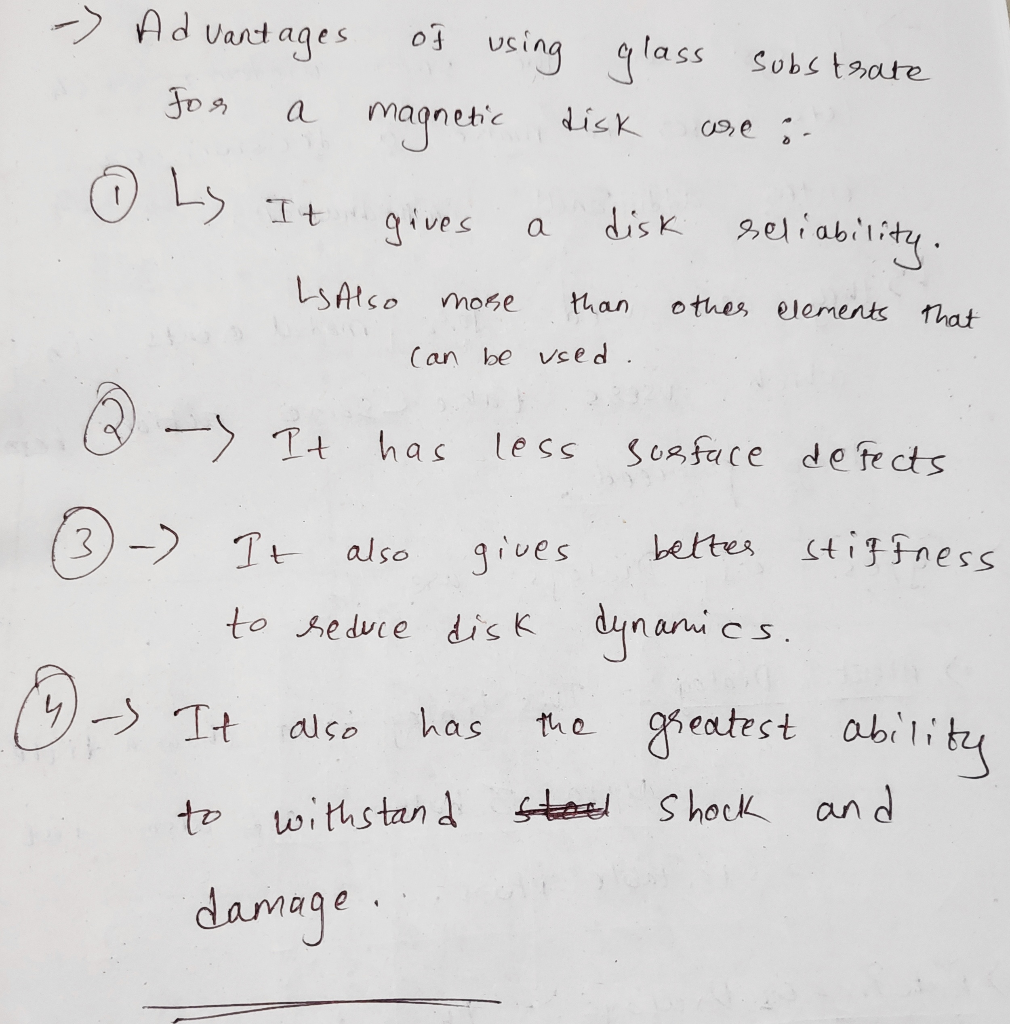 -> Advantages of using glass substrate
for a magnetic disk are :-
① ↳ It gives a disk reliability.
↳ Also more than other elements that
can be used.
② -> It has less surface defects
③ -> It also gives better stiffness
to reduce disk dynamics.
④ -> It also has the greatest ability
to withstand shock and
damage.